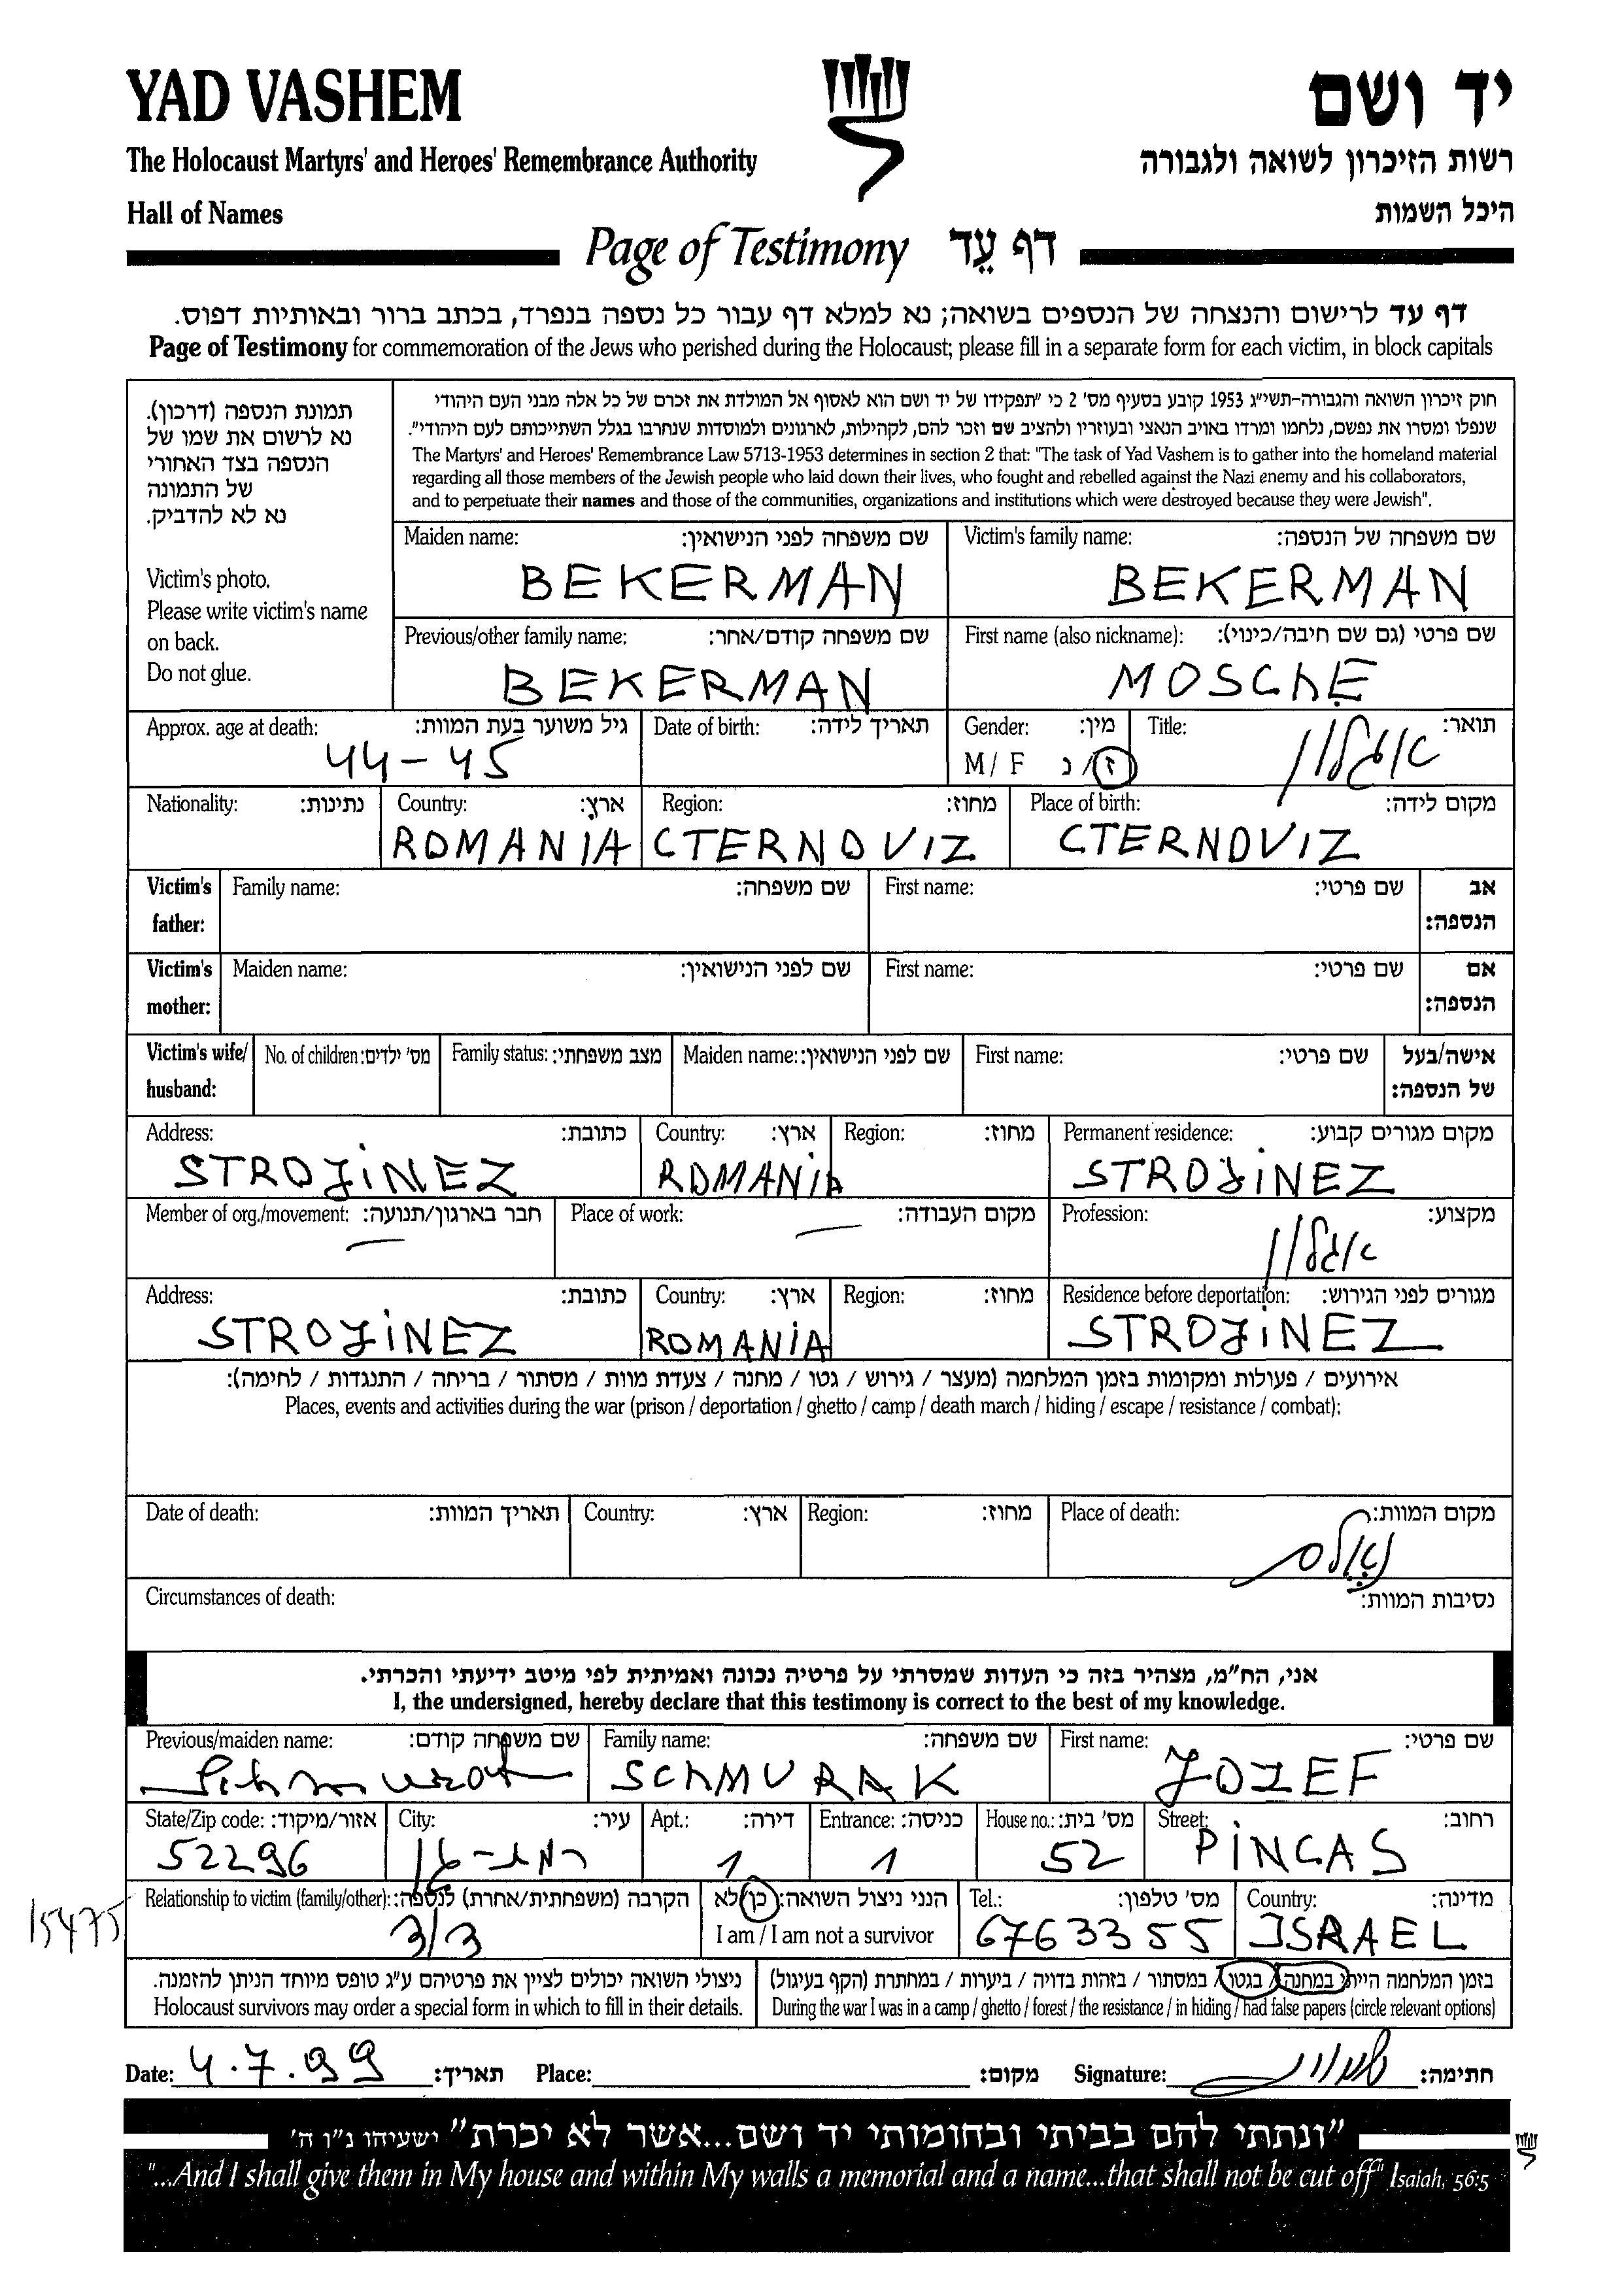 YAD VASHEM
יד ושם
The Holocaust Martyrs' and Heroes' Remembrance Authority
רשות הזיכרון לשואה ולגבורה
Hall of Names
היכל השמות
Page of Testimony דף עֵד
דף עד לרישום והנצחה של הנספים בשואה; נא למלא דף עבור כל נספה בנפרד, בכתב ברור ובאותיות דפוס.
Page of Testimony for commemoration of the Jews who perished during the Holocaust; please fill in a separate form for each victim, in block capitals
תמונת הנספה (דרכון).
נא לרשום את שמו של
הנספה בצד האחורי
של התמונה
נא לא להדביק.
Victim's photo.
Please write victim's name
on back.
Do not glue.
חוק זיכרון השואה והגבורה-תשי"ג 1953 קובע בסעיף מס' 2 כי "תפקידו של יד ושם הוא לאסוף אל המולדת את זכרם של כל אלה מבני העם היהודי
שנפלו ומסרו את נפשם, נלחמו ומרדו באויב הנאצי ובעוזריו ולהציב שם וזכר להם, לקהילות, לארגונים ולמוסדות שנחרבו בגלל השתייכותם לעם היהודי".
The Martyrs' and Heroes' Remembrance Law 5713-1953 determines in section 2 that: "The task of Yad Vashem is to gather into the homeland material
regarding all those members of the Jewish people who laid down their lives, who fought and rebelled against the Nazi enemy and his collaborators,
and to perpetuate their names and those of the communities, organizations and institutions which were destroyed because they were Jewish".
Maiden name: שם משפחה לפני הנישואין: Victim's family name: שם משפחה של הנספה:
BEKERMAN BEKERMAN
Previous/other family name: שם משפחה קודם/אחר: First name (also nickname): שם פרטי (גם שם חיבה/כינוי):
BEKERMAN MOSChE
Approx. age at death: גיל משוער בעת המוות: Date of birth: תאריך לידה: Gender: מין: Title: תואר:
44-45 M / F ז/נ
Nationality: נתינות: Country: ארץ: Region: מחוז: Place of birth: מקום לידה:
ROMANIA CTERNOVIZ CTERNOVIZ
Victim's father: Family name: שם משפחה: First name: שם פרטי: אב הנספה:
Victim's mother: Maiden name: שם לפני הנישואין: First name: שם פרטי: אם הנספה:
Victim's wife/ husband: No. of children: מס' ילדים: Family status: מצב משפחתי: Maiden name: שם לפני הנישואין: First name: שם פרטי: אישה/בעל של הנספה:
Address: כתובת: Country: ארץ: Region: מחוז: Permanent residence: מקום מגורים קבוע:
STROJINEZ ROMANIA STROJINEZ
Member of org./movement: חבר בארגון/תנועה: Place of work: מקום העבודה: Profession: מקצוע:
Address: כתובת: Country: ארץ: Region: מחוז: Residence before deportation: מגורים לפני הגירוש:
STROJINEZ ROMANIA STROJINEZ
אירועים / פעולות ומקומות בזמן המלחמה (מעצר / גירוש / גטו / מחנה / צעדת מוות / מסתור / בריחה / התנגדות / לחימה):
Places, events and activities during the war (prison / deportation / ghetto / camp / death march / hiding / escape / resistance / combat):
Date of death: תאריך המוות: Country: ארץ: Region: מחוז: Place of death: מקום המוות:
Circumstances of death: נסיבות המוות:
אני, הח"מ, מצהיר בזה כי העדות שמסרתי על פרטיה נכונה ואמיתית לפי מיטב ידיעתי והכרתי.
I, the undersigned, hereby declare that this testimony is correct to the best of my knowledge.
Previous/maiden name: שם משפחה קודם: Family name: שם משפחה: First name: שם פרטי:
SCHMURAK JOZEF
State/Zip code: אזור/מיקוד: City: עיר: Apt.: דירה: Entrance: כניסה: House no.: מס' בית: Street: רחוב:
52296 רמת-גן 1 1 52 PINCAS
Relationship to victim (family/other): הקרבה (משפחתית/אחרת) לנספה: הנני ניצול השואה: כן/לא Tel.: מס' טלפון: Country: מדינה:
15475 דוד I am / I am not a survivor 6763355 ISRAEL
ניצולי השואה יכולים לציין את פרטיהם ע"ג טופס מיוחד הניתן להזמנה. בזמן המלחמה הייתי במחנה / בגטו / במסתור / בזהות בדויה / ביערות / במחתרת (הקף בעיגול)
Holocaust survivors may order a special form in which to fill in their details. During the war I was in a camp / ghetto / forest / the resistance / in hiding / had false papers (circle relevant options)
Date: 4.7.99 תאריך: Place: מקום: Signature: חתימה:
"ונתתי להם בביתי ובחומותי יד ושם...אשר לא יכרת" ישעיהו נ"ו ה'
"...And I shall give them in My house and within My walls a memorial and a name...that shall not be cut off" Isaiah, 56:5